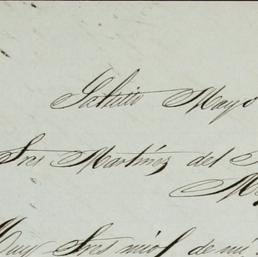 Saltillo Mayo
Sres Martínez del
Muy Sres mios de mi